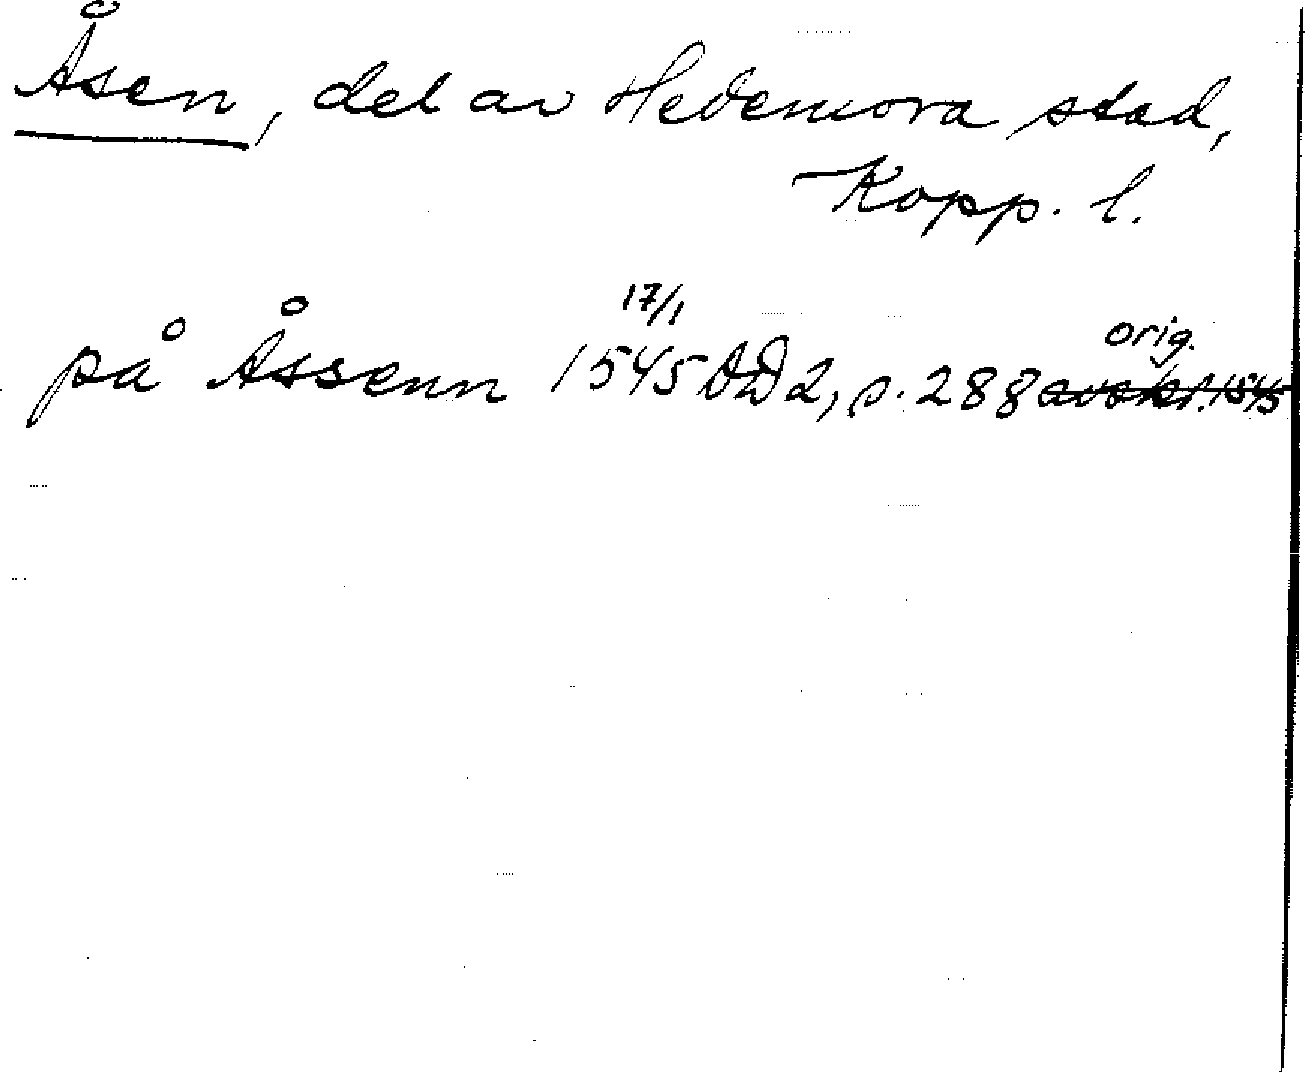 Åsen, del av Hedemora stad,
Kopp. l.
17/1
på Åssenn 1545 DD 2, s. 288 avskr. 1545
orig.